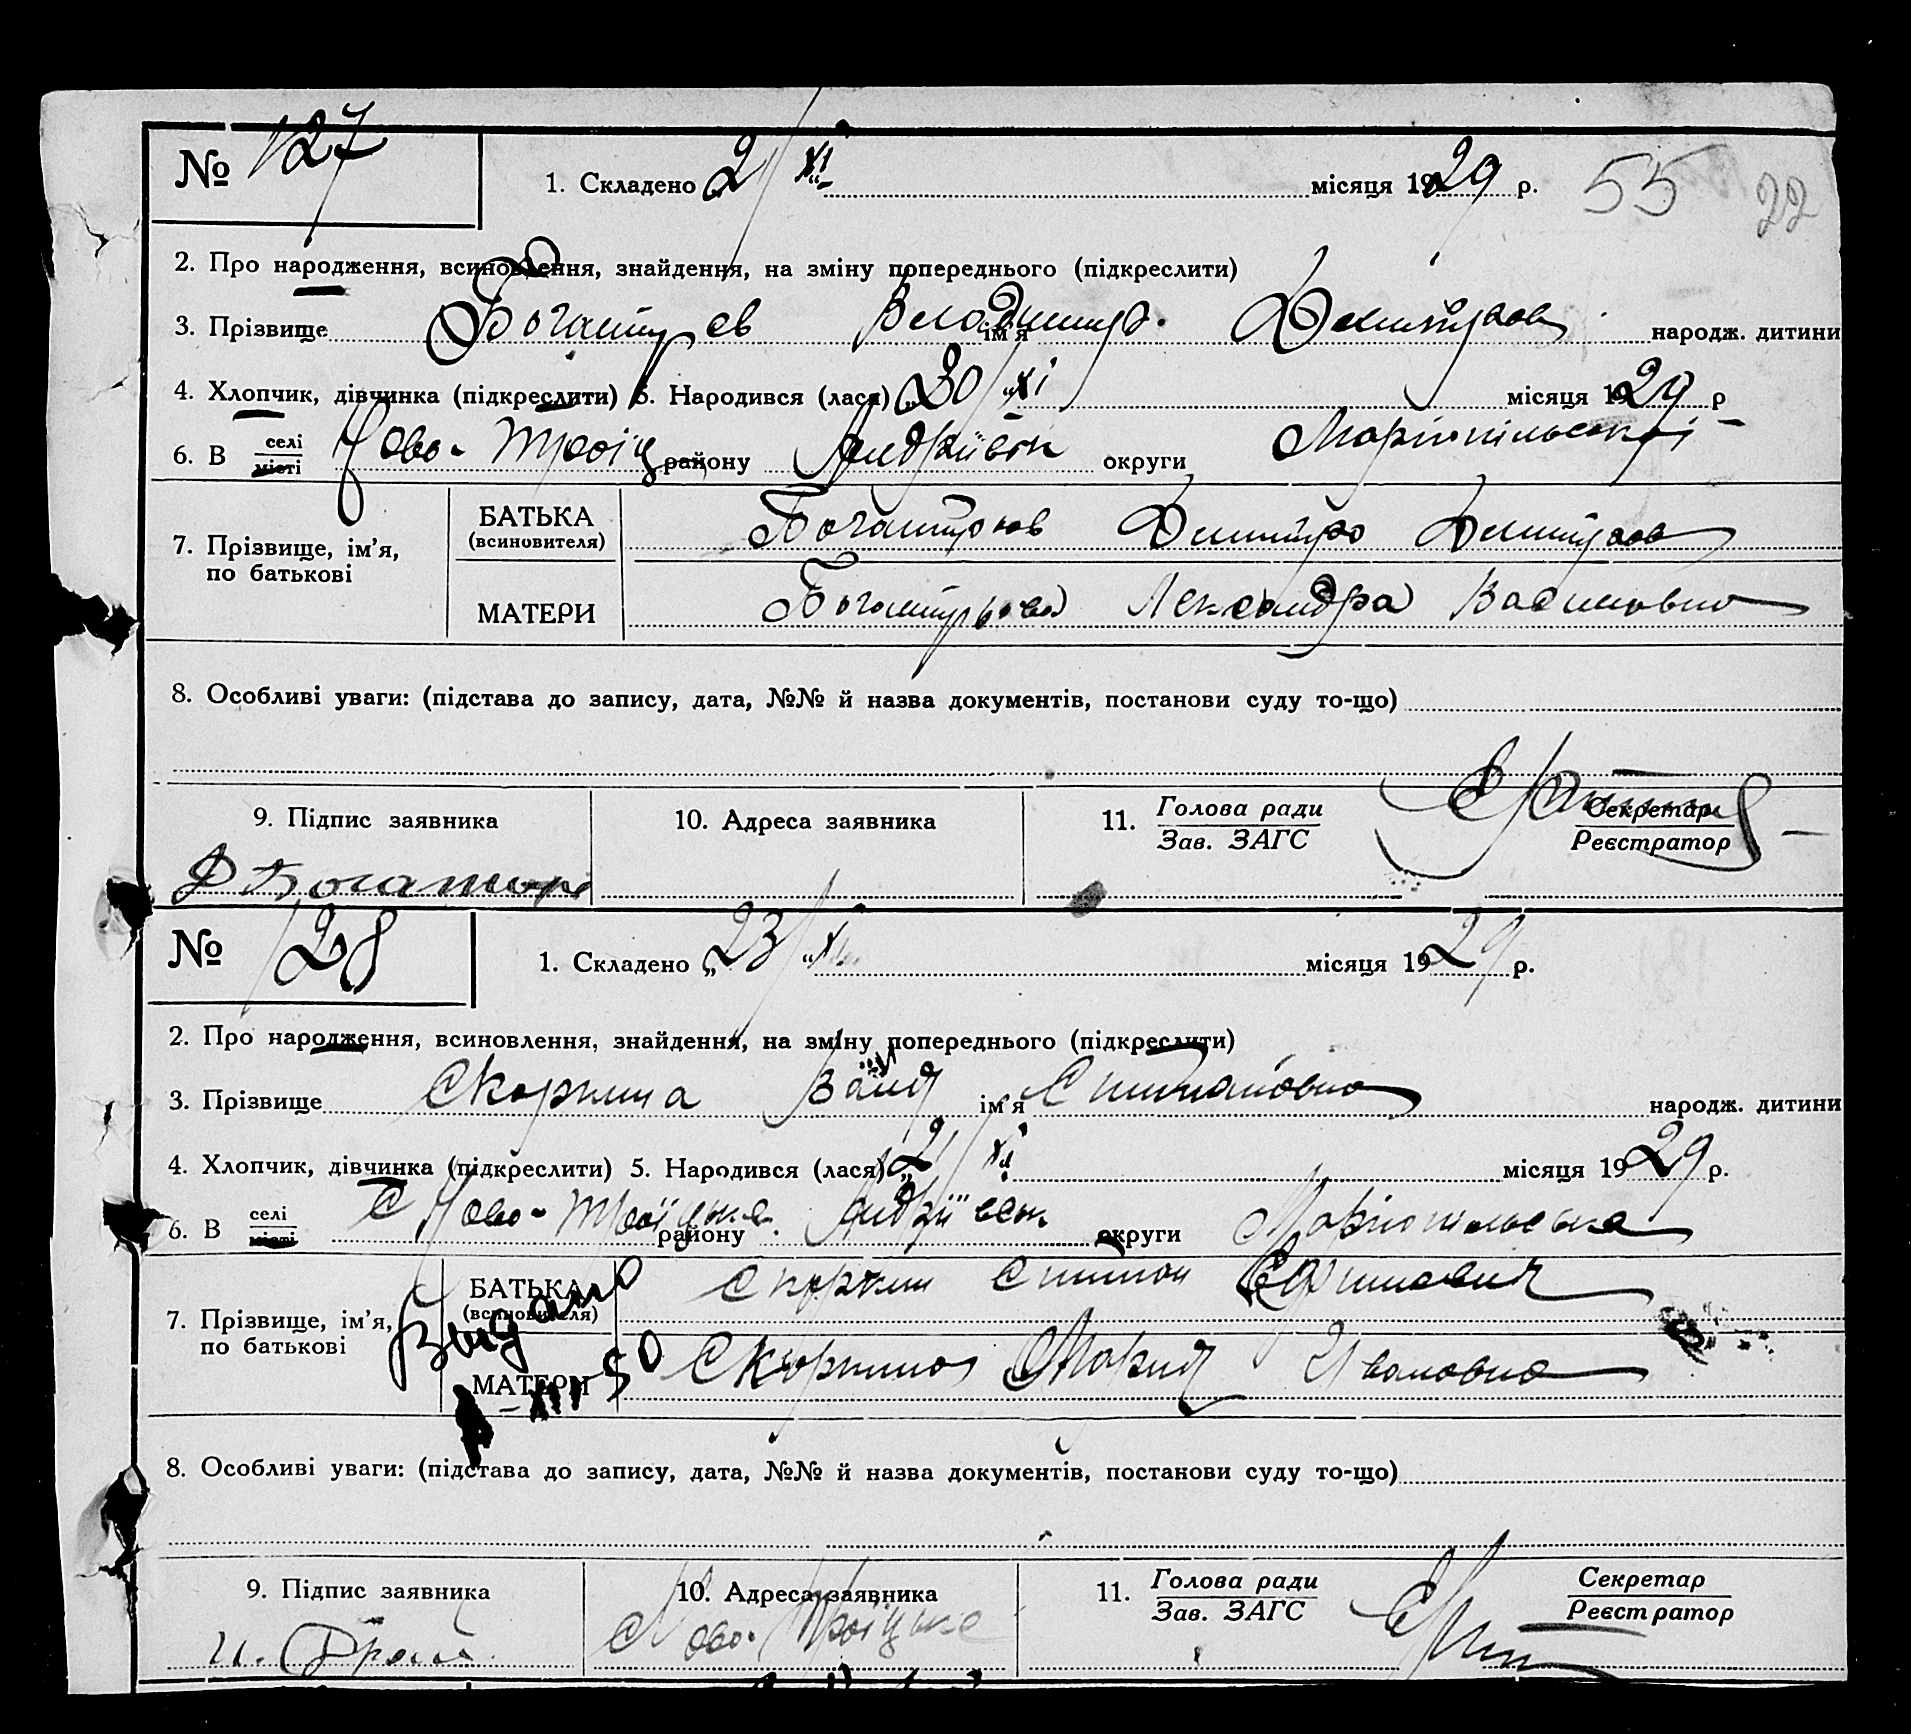 № 127
1. Складено „21 “ XI місяця 1929 р. 55 22
2. Про народження, всиновлення, знайдення, на зміну попереднього (підкреслити)
3. Прізвище Богатирев ім'я Володимир народж. дитини
4. Хлопчик, дівчинка (підкреслити) 5. Народився (лася) „30 “ XI місяця 1929 р
6. В селі місті Ново-Троїц району Андріївськ округи Маріюпільської
7. Прізвище, ім'я, по батькові
БАТЬКА (всиновителя) Дмитро
МАТЕРИ Лександра
8. Особливі уваги: (підстава до запису, дата, №№ й назва документів, постанови суду то-що)
9. Підпис заявника 10. Адреса заявника 11. Голова ради Зав. ЗАГС Секретар Реєстратор
№ 128
1. Складено „23 “ XI місяця 1929 р.
2. Про народження, всиновлення, знайдення, на зміну попереднього (підкреслити)
3. Прізвище Скоркина ім'я народж. дитини
4. Хлопчик, дівчинка (підкреслити) 5. Народився (лася) „21 XI місяця 1929 р.
6. В селі місті с Ново-Троїцьке району Андріївськ округи Маріюпільська
7. Прізвище, ім'я, по батькові
БАТЬКА (всиновителя) Скоркин
МАТЕРИ Скоркина Мария Ивановна
8. Особливі уваги: (підстава до запису, дата, №№ й назва документів, постанови суду то-що)
9. Підпис заявника 10. Адреса заявника 11. Голова ради Зав. ЗАГС Секретар Реєстратор
с Ново-Троїцьке